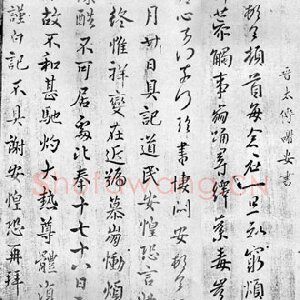 晉太傅謝安書
頓首每念君一旦知窮煩
慕觸事崩踊尋繹荼毒豈
心奈何奈何臨書悽悶安頓
月廿日具記道民安惶恐言
終惟祥變在近號慕崩慟煩
酷不可居處比奉十七十八日
故不和甚馳灼大熱尊體復
謹白記不具謝安惶恐再拜
Shufawang.CN